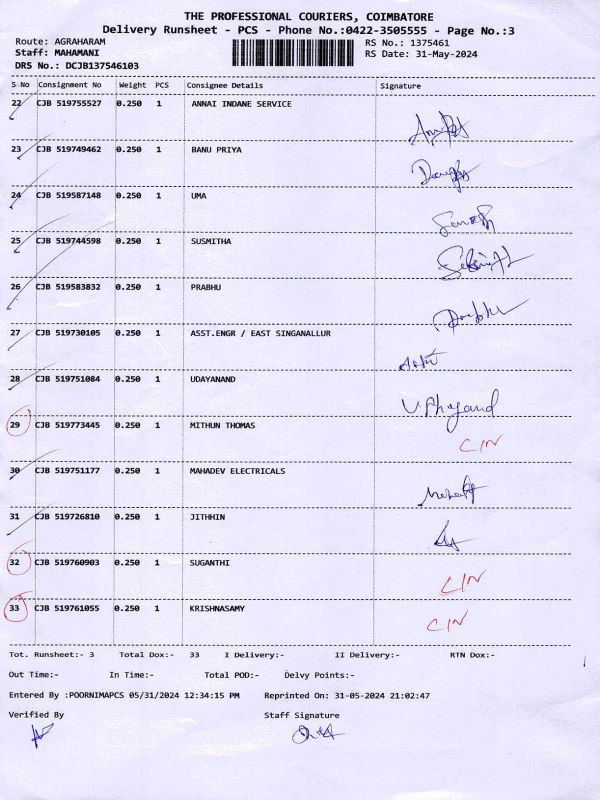 THE PROFESSIONAL COURIERS, COIMBATORE
Delivery Runsheet - PCS - Phone No.:0422-3505555 - Page No.:3
Route: AGRAHARAM RS No.: 1375461
Staff: MAHAMANI RS Date: 31-May-2024
DRS No.: DCJB137546103
S No Consignment No Weight PCS Consignee Details Signature
22 CJB 519755527 0.250 1 ANNAI INDANE SERVICE
23 CJB 519749462 0.250 1 BANU PRIYA
24 CJB 519587148 0.250 1 UMA
25 CJB 519744598 0.250 1 SUSMITHA
26 CJB 519583832 0.250 1 PRABHU
27 CJB 519730105 0.250 1 ASST.ENGR / EAST SINGANALLUR
28 CJB 519751084 0.250 1 UDAYANAND
29 CJB 519773445 0.250 1 MITHUN THOMAS
CIN
30 CJB 519751177 0.250 1 MAHADEV ELECTRICALS
31 CJB 519726810 0.250 1 JITHHIN
32 CJB 519760903 0.250 1 SUGANTHI
CIN
33 CJB 519761055 0.250 1 KRISHNASAMY
CIN
Tot. Runsheet:- 3 Total Dox:- 33 I Delivery:- II Delivery:- RTN Dox:-
Out Time:- In Time:- Total POD:- Delvy Points:-
Entered By :POORNIMAPCS 05/31/2024 12:34:15 PM Reprinted On: 31-05-2024 21:02:47
Verified By Staff Signature